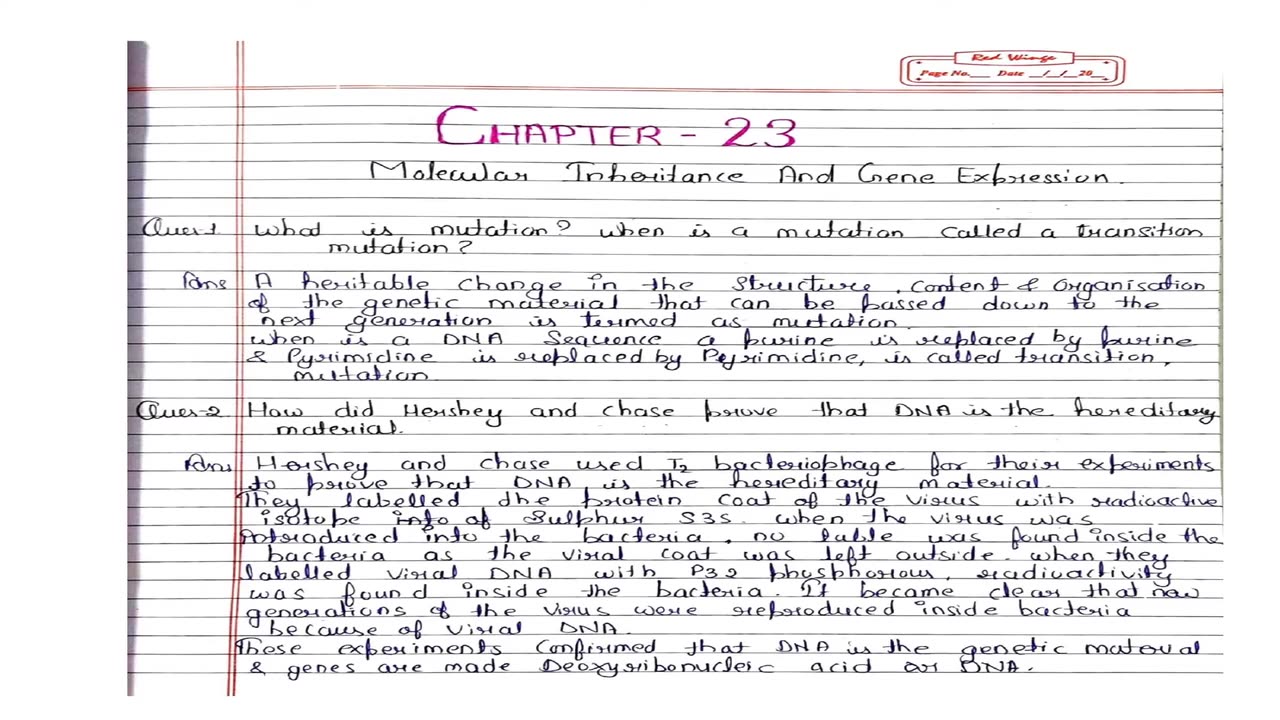 Red Wings
Page No.___ Date __/__/20__
CHAPTER - 23
Molecular Inheritance And Gene Expression.
Ques-1 What is mutation? when is a mutation called a transition
mutation?
Ans A heritable change in the structure, content & Organisation
of the genetic material that can be passed down to the
next generation is termed as mutation.
when is a DNA Sequence a purine is replaced by purine
& Pyrimidine is replaced by Pyrimidine, is called transition,
mutation
Ques-2 How did Hershey and chase prove that DNA is the hereditary
material.
Ans Hershey and chase used T2 bacteriophage for their experiments
to prove that DNA is the hereditary material.
They labelled the protein coat of the virus with radioactive
isotope info of Sulphur S35. when the virus was
introduced into the bacteria, no lable was found inside the
bacteria as the viral coat was left outside. when they
labelled viral DNA with P32 phosphorous, radioactivity
was found inside the bacteria. It became clear that new
generations of the virus were reproduced inside bacteria
because of viral DNA.
These experiments confirmed that DNA is the genetic material
& genes are made Deoxyribonucleic acid or DNA.